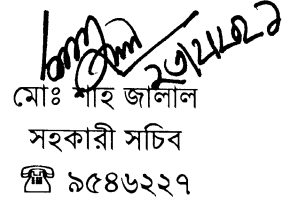 মোঃ শাহ জালাল
সহকারী সচিব
☎ ৯৫৪৬২২৭